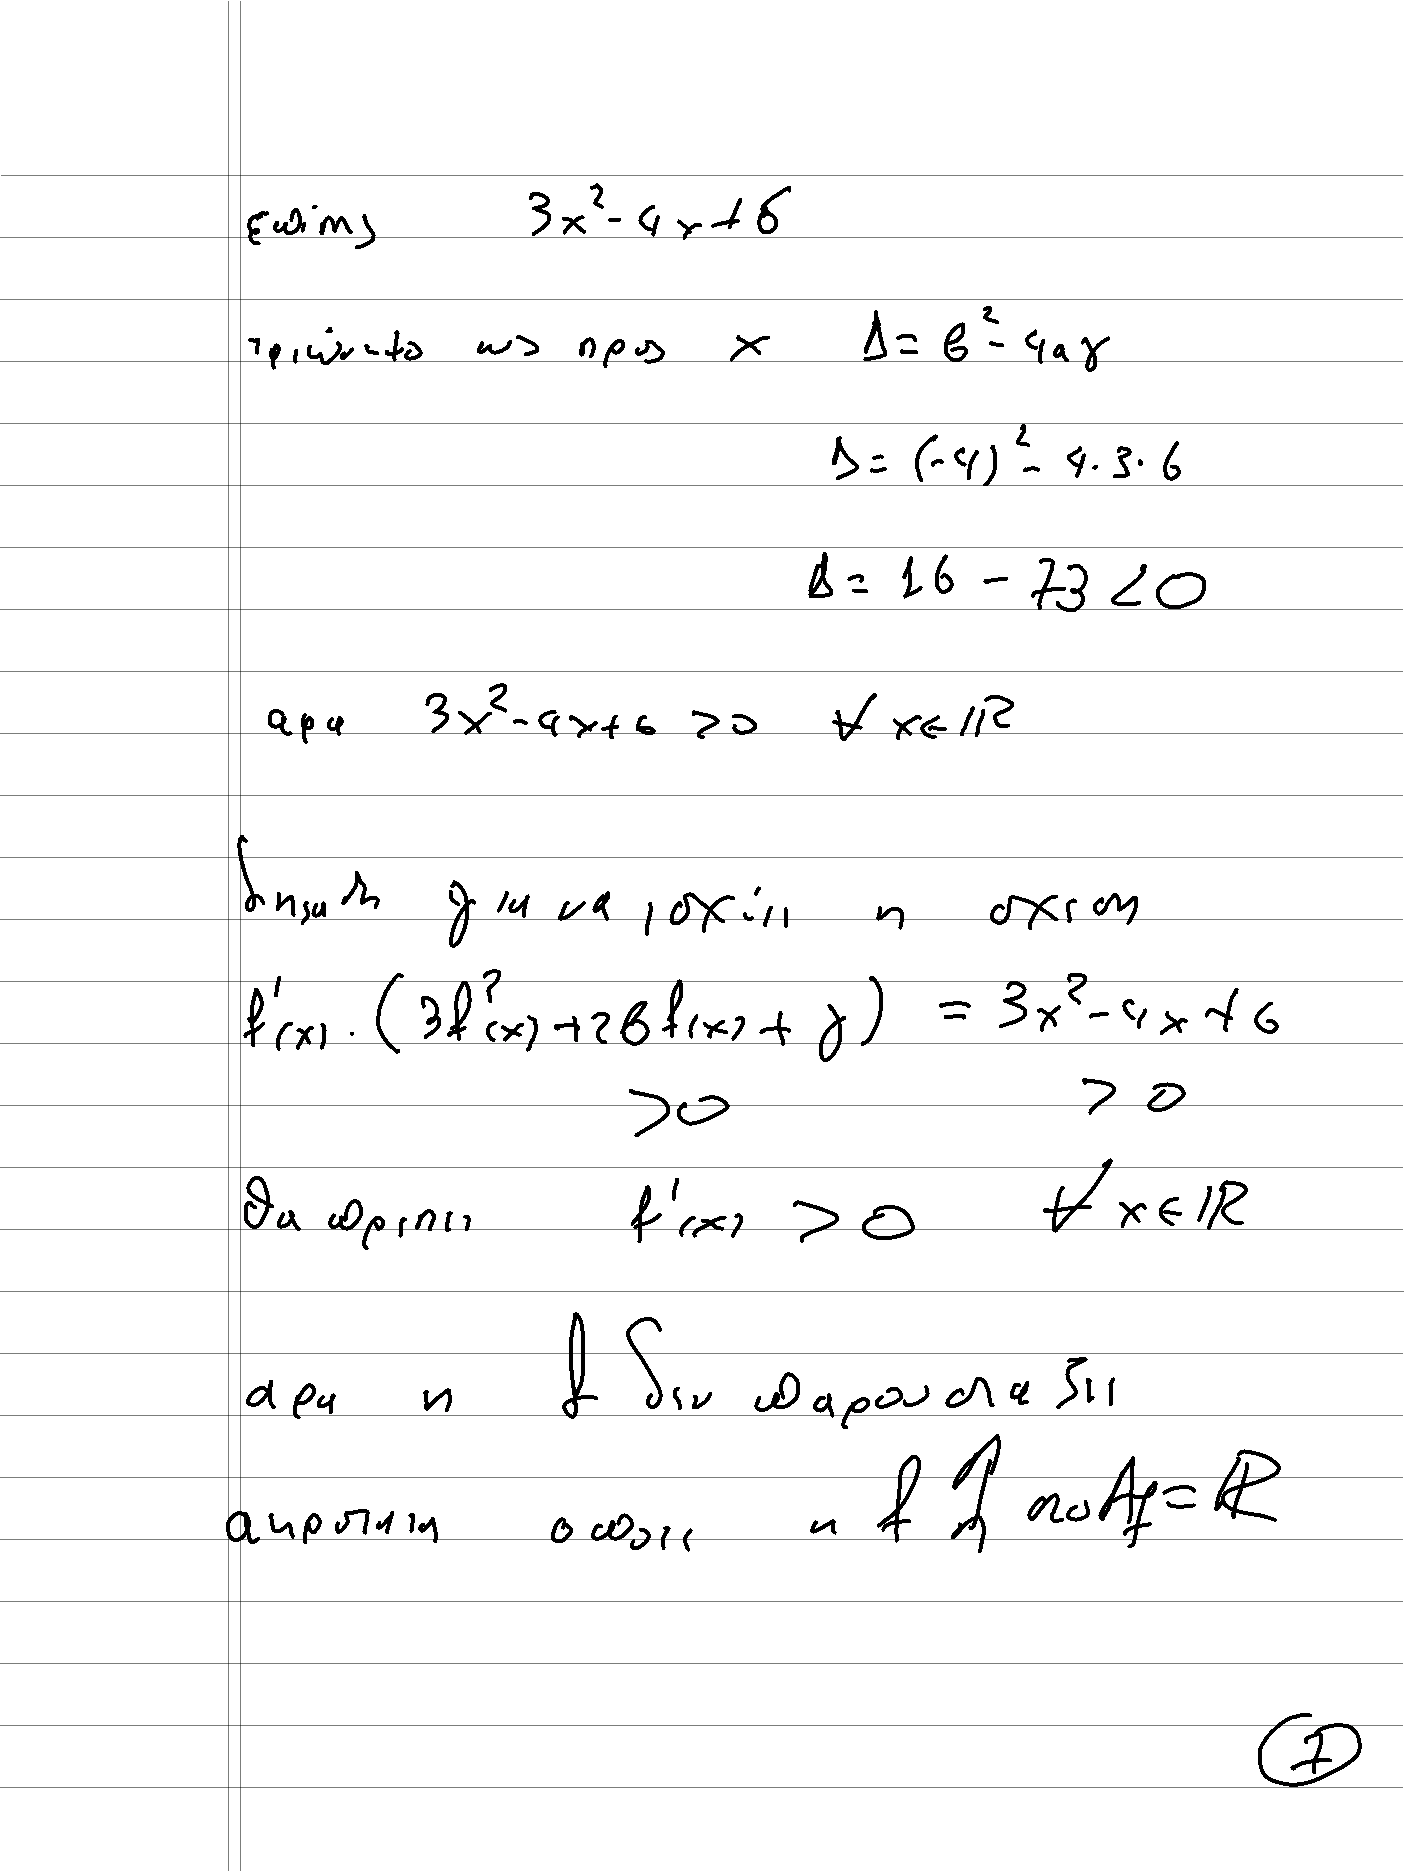 επίσης 3x² - 4x + 6
τριώνυμο ως προς x Δ = β² - 4αγ
Δ = (-4)² - 4·3·6
Δ = 16 - 73 < 0
αρα 3x² - 4x + 6 > 0 ∀ x ∈ ℝ
δηλαδη για να ισχύει η σχεση
f'(x) · (3f²(x) + 2βf(x) + γ) = 3x² - 4x + 6
> 0 > 0
θα πρεπει f'(x) > 0 ∀ x ∈ ℝ
αρα η f δεν παρουσιαζει
ακροτατα οποτε η f ↑ στο Af = ℝ
7